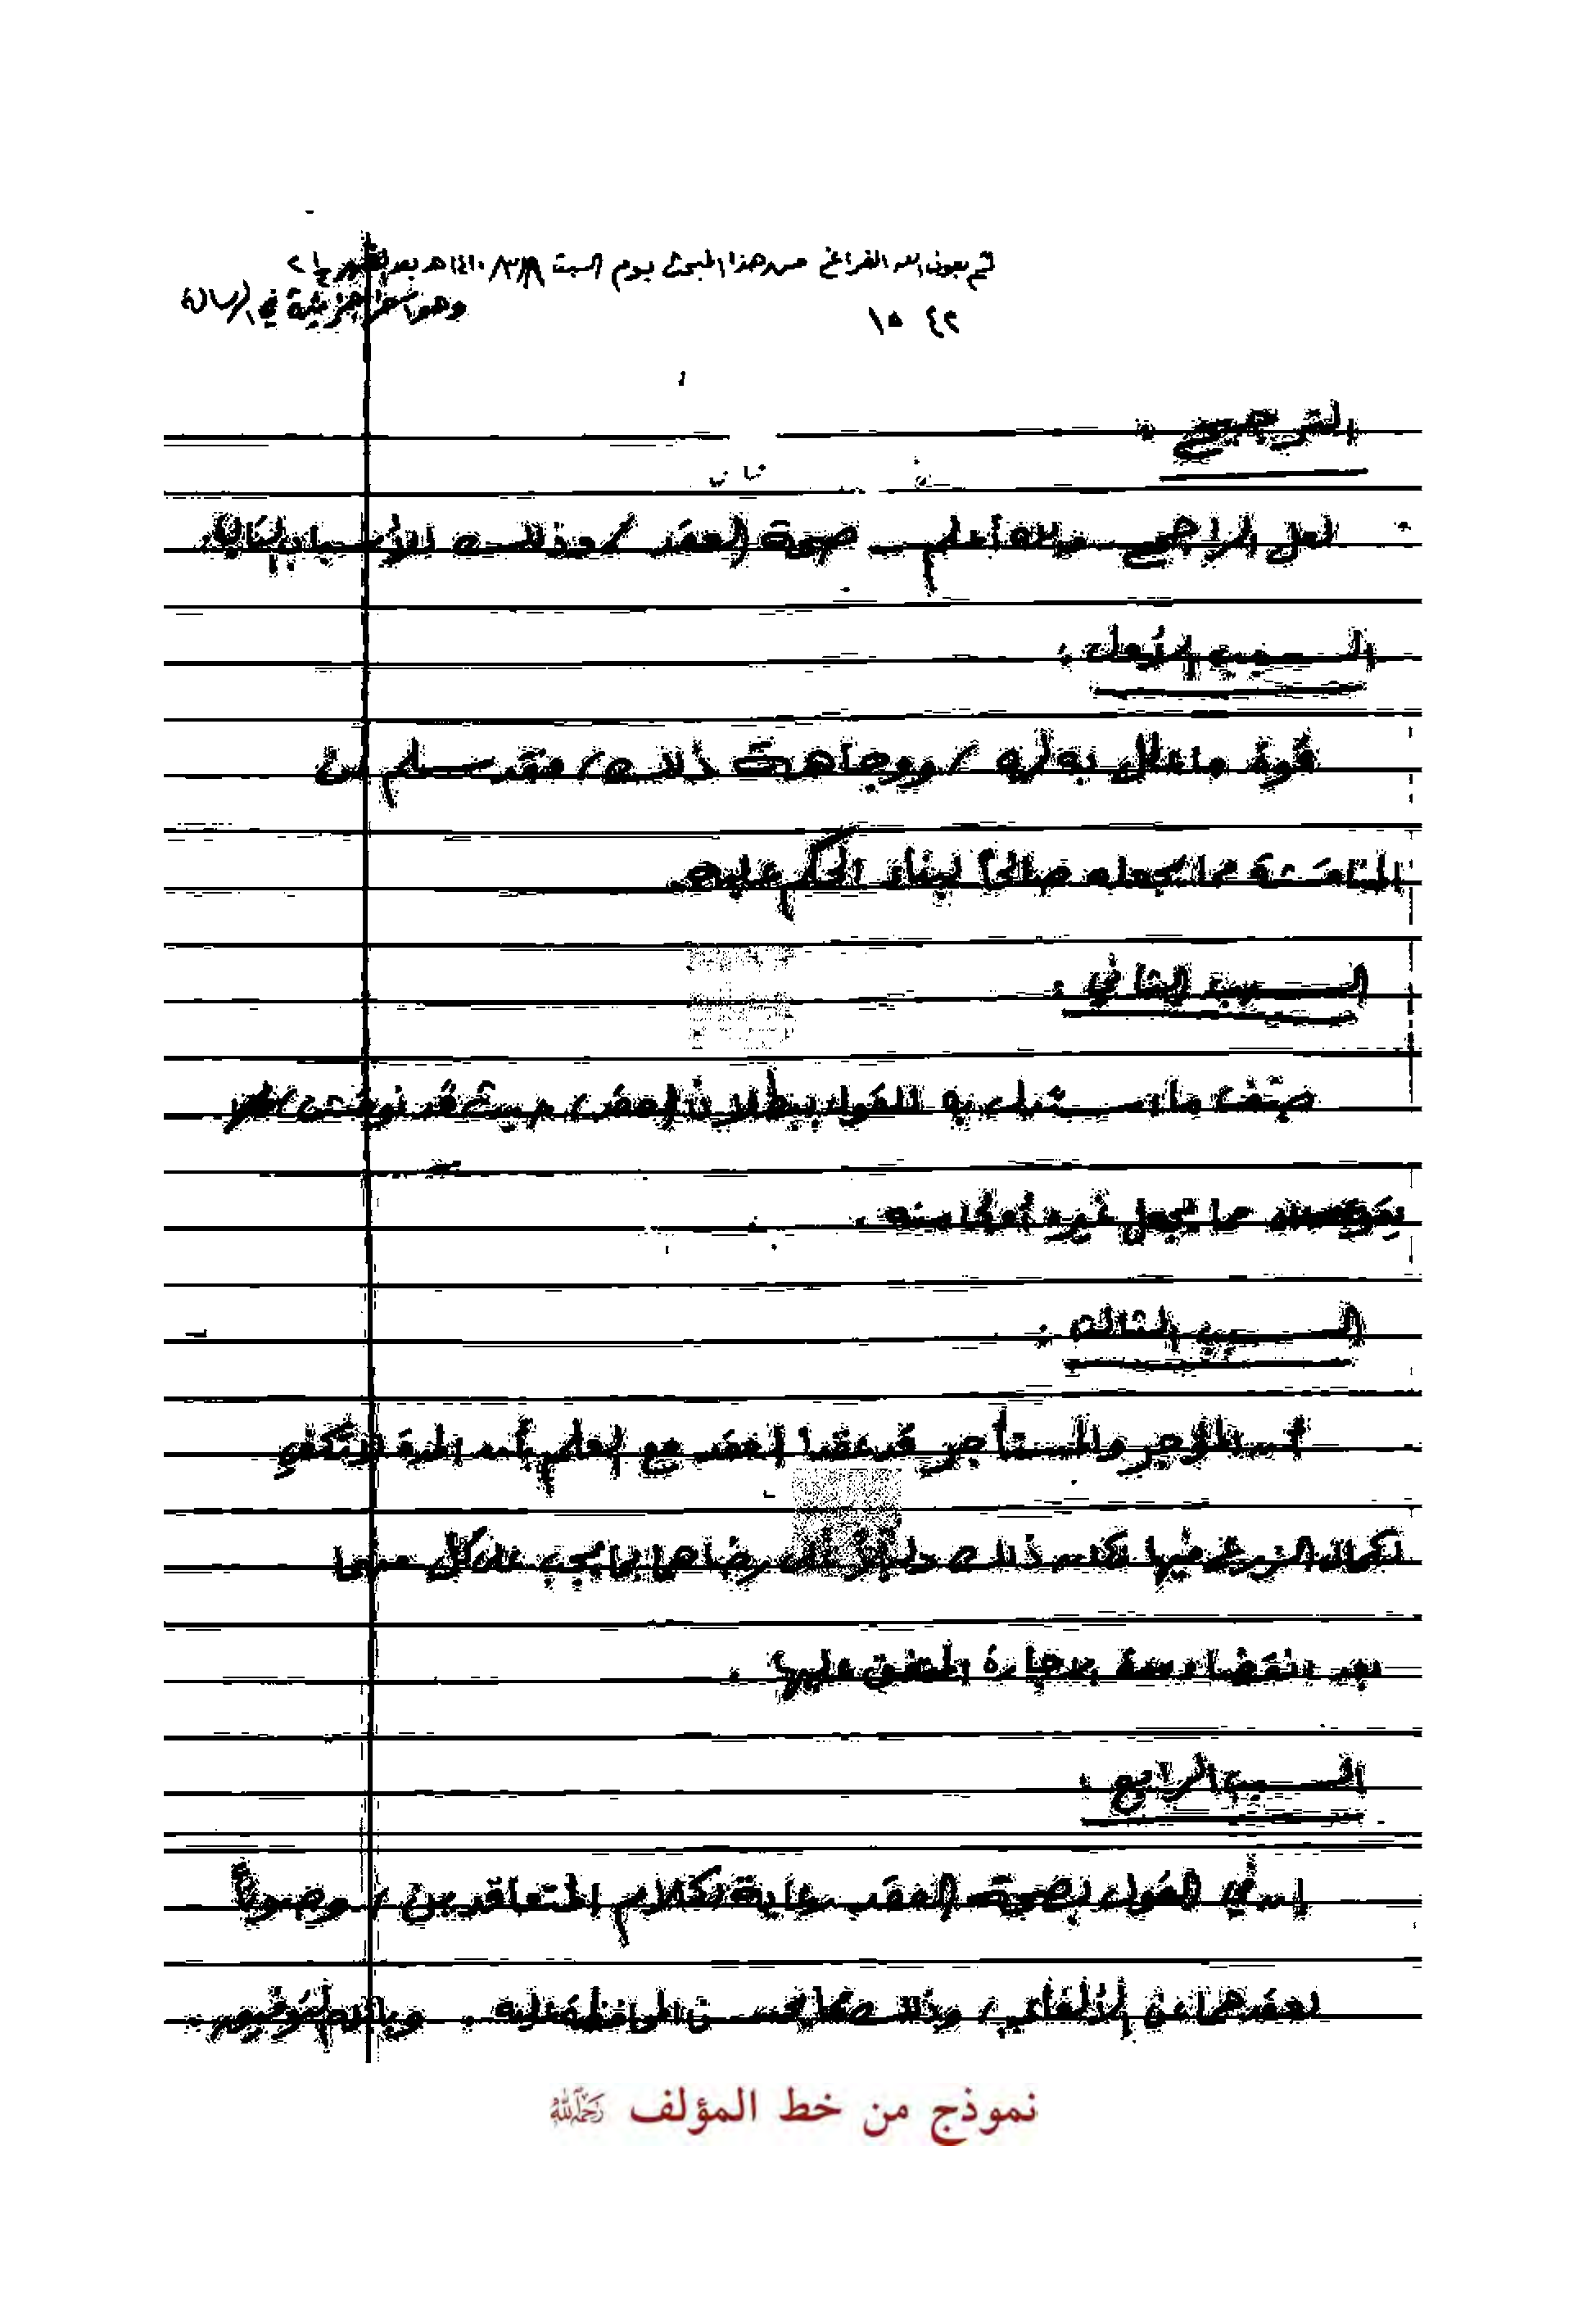 تم بعون الله الفراغ من هذا المبحث يوم السبت ١٤١٠/٣/١٨هـ بعد
وهو آخر جزئية في الرسالة
٤٢ ١٥
الترجيح :
لعل الراجح - والله أعلم - صحة العقد، وذلك للأسباب التالية :
السبب الأول :
قوة ما علل به له، ووجاهة ذلك، فقد سلم من
المناقشة مما يجعله صالحًا لبناء الحكم عليه.
السبب الثاني :
ضعف ما استدل به للقول ببطلان العقد، حيث قد نوقش
مما يجعل غيره أرجح منه.
السبب الثالث :
أن المؤجر والمستأجر قد عقدا العقد مع العلم أن المدة لا تكفي
لكمال الزرع فيها فكان ذلك دليلا على رضاهما بما يجب على كل منهما
بعد انقضاء مدة الإجارة المتفق عليها .
السبب الرابع :
إن في القول بصحة العقد رعاية لكلام المتعاقدين، وصونًا
لعقدهما عن الإلغاء، وذلك مما يحسن المحافظة عليه . وبالله التوفيق .
نموذج من خط المؤلف رحمه الله